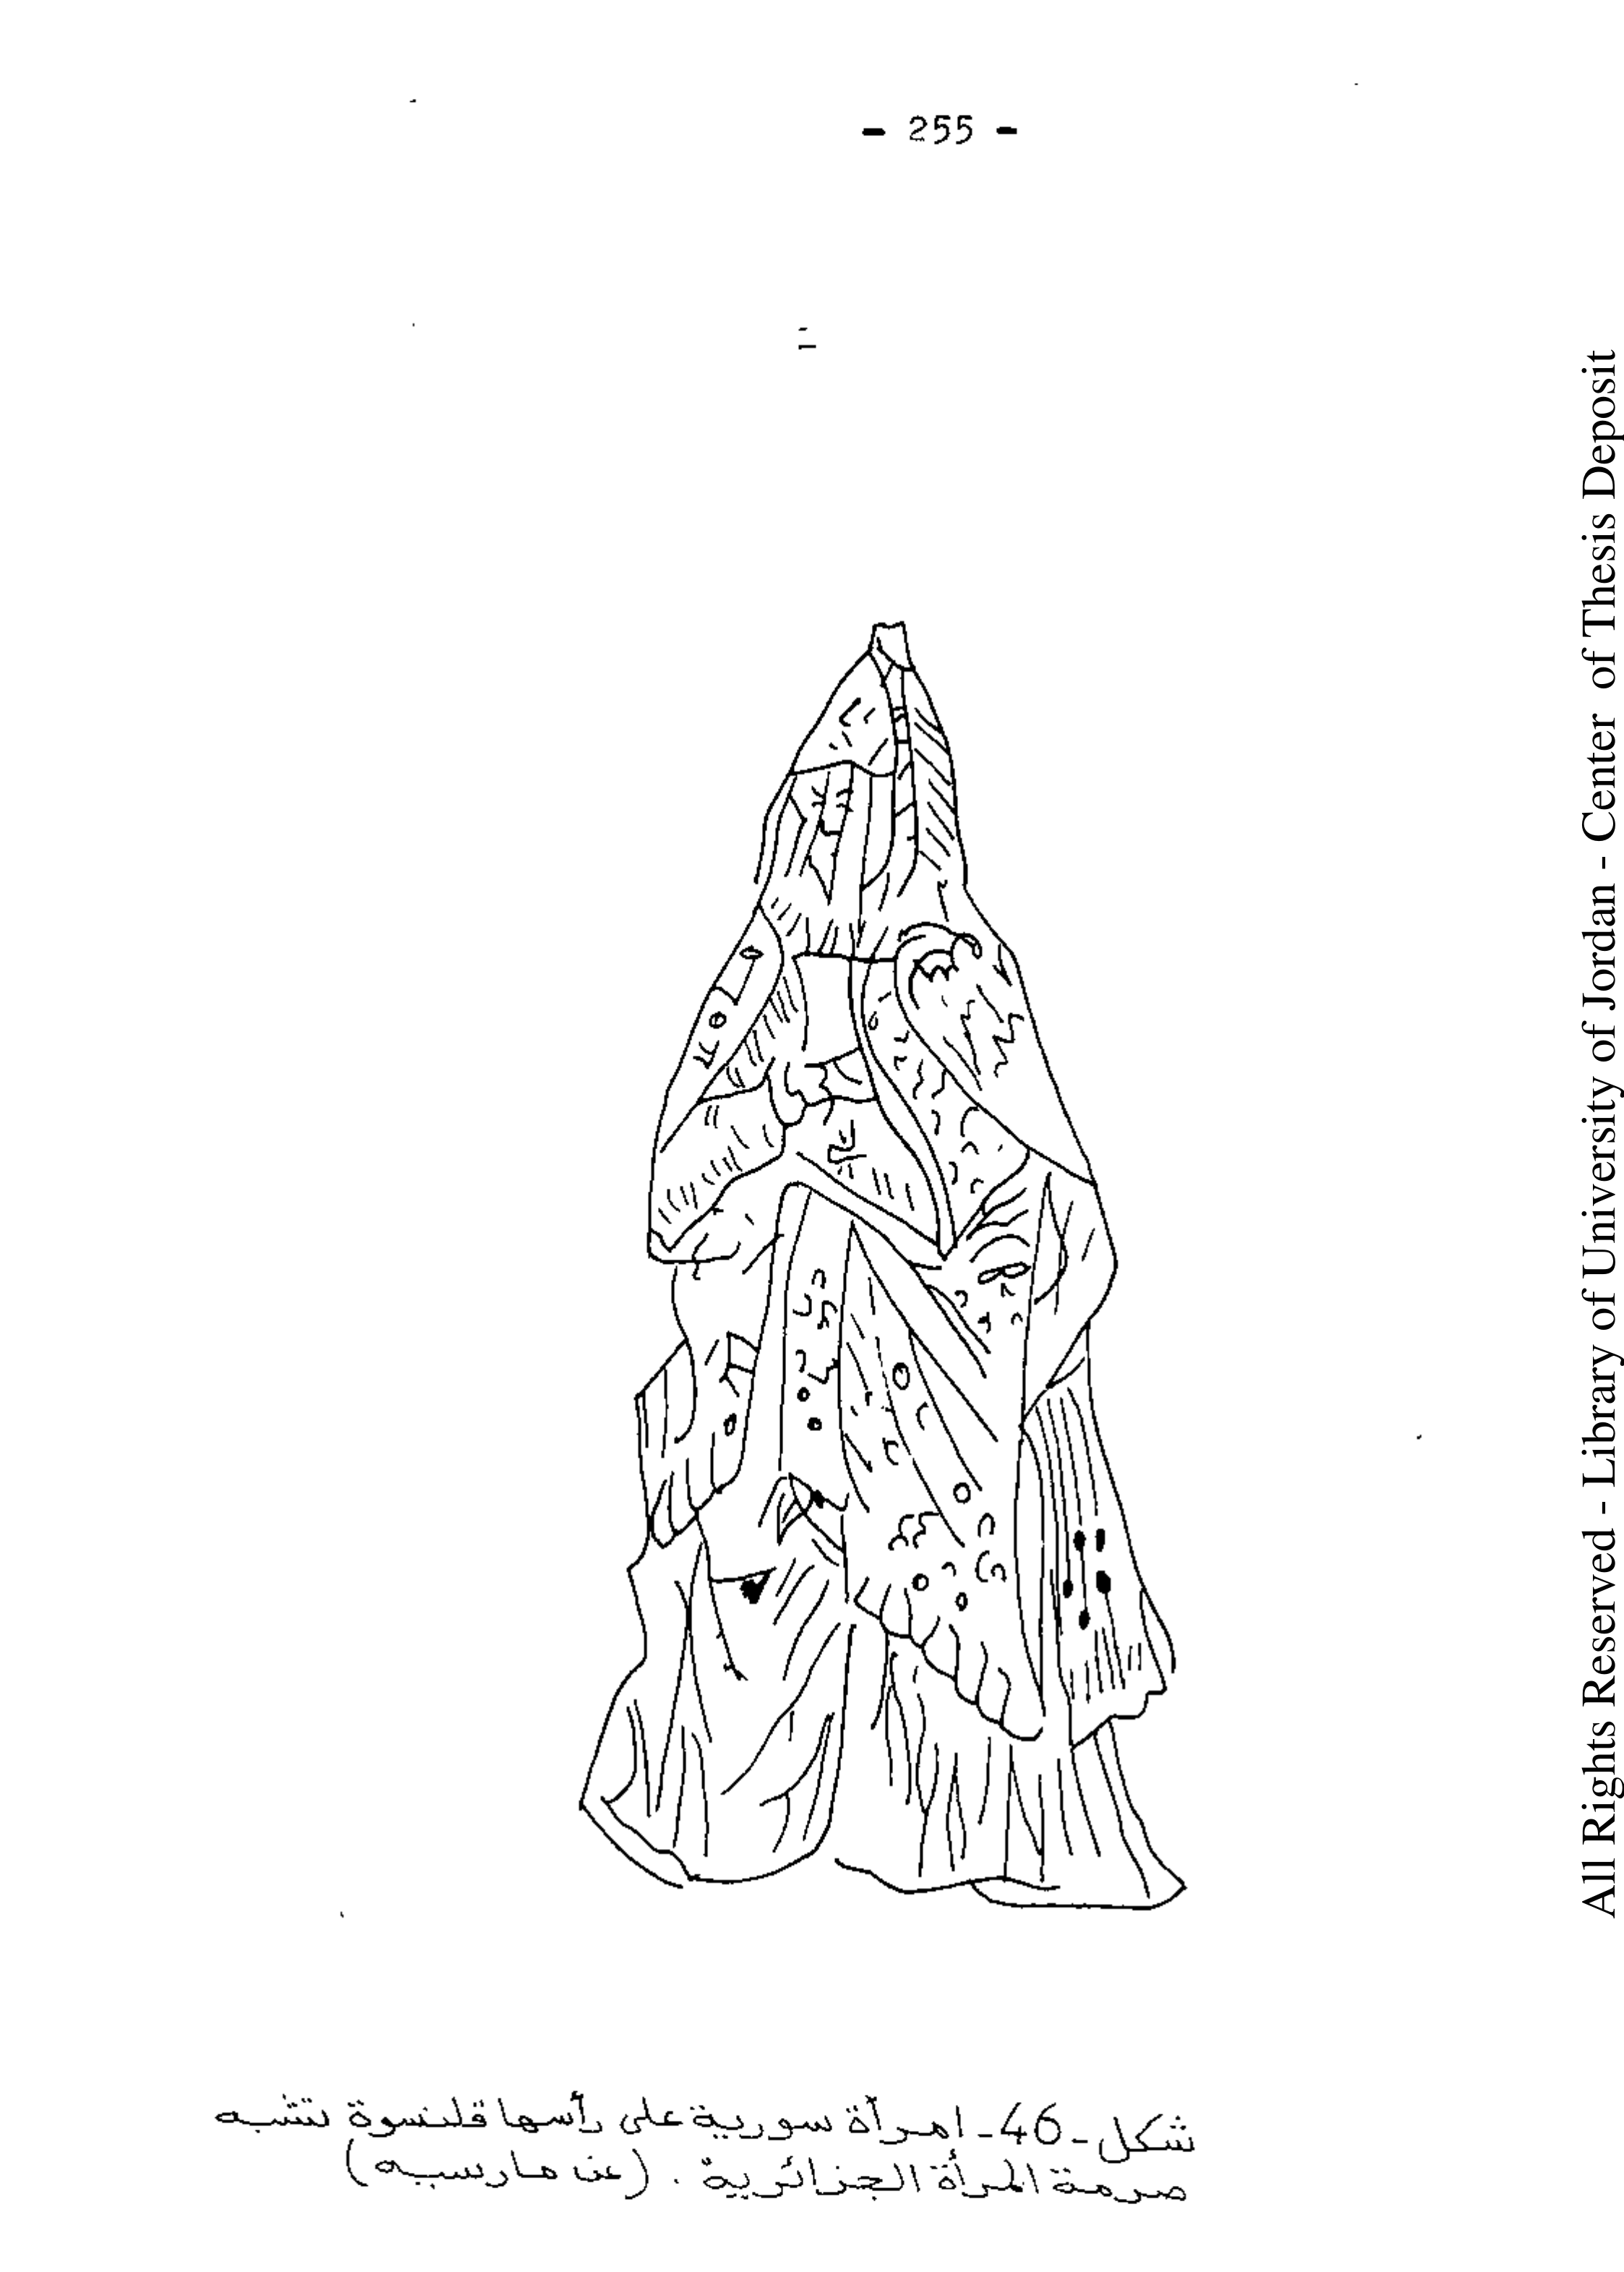 - 255 -
شكل -46- امرأة سورية على رأسها قلنسوة تشبه
صرمة المرأة الجزائرية . (عن مارسيه)
All Rights Reserved - Library of University of Jordan - Center of Thesis Deposit